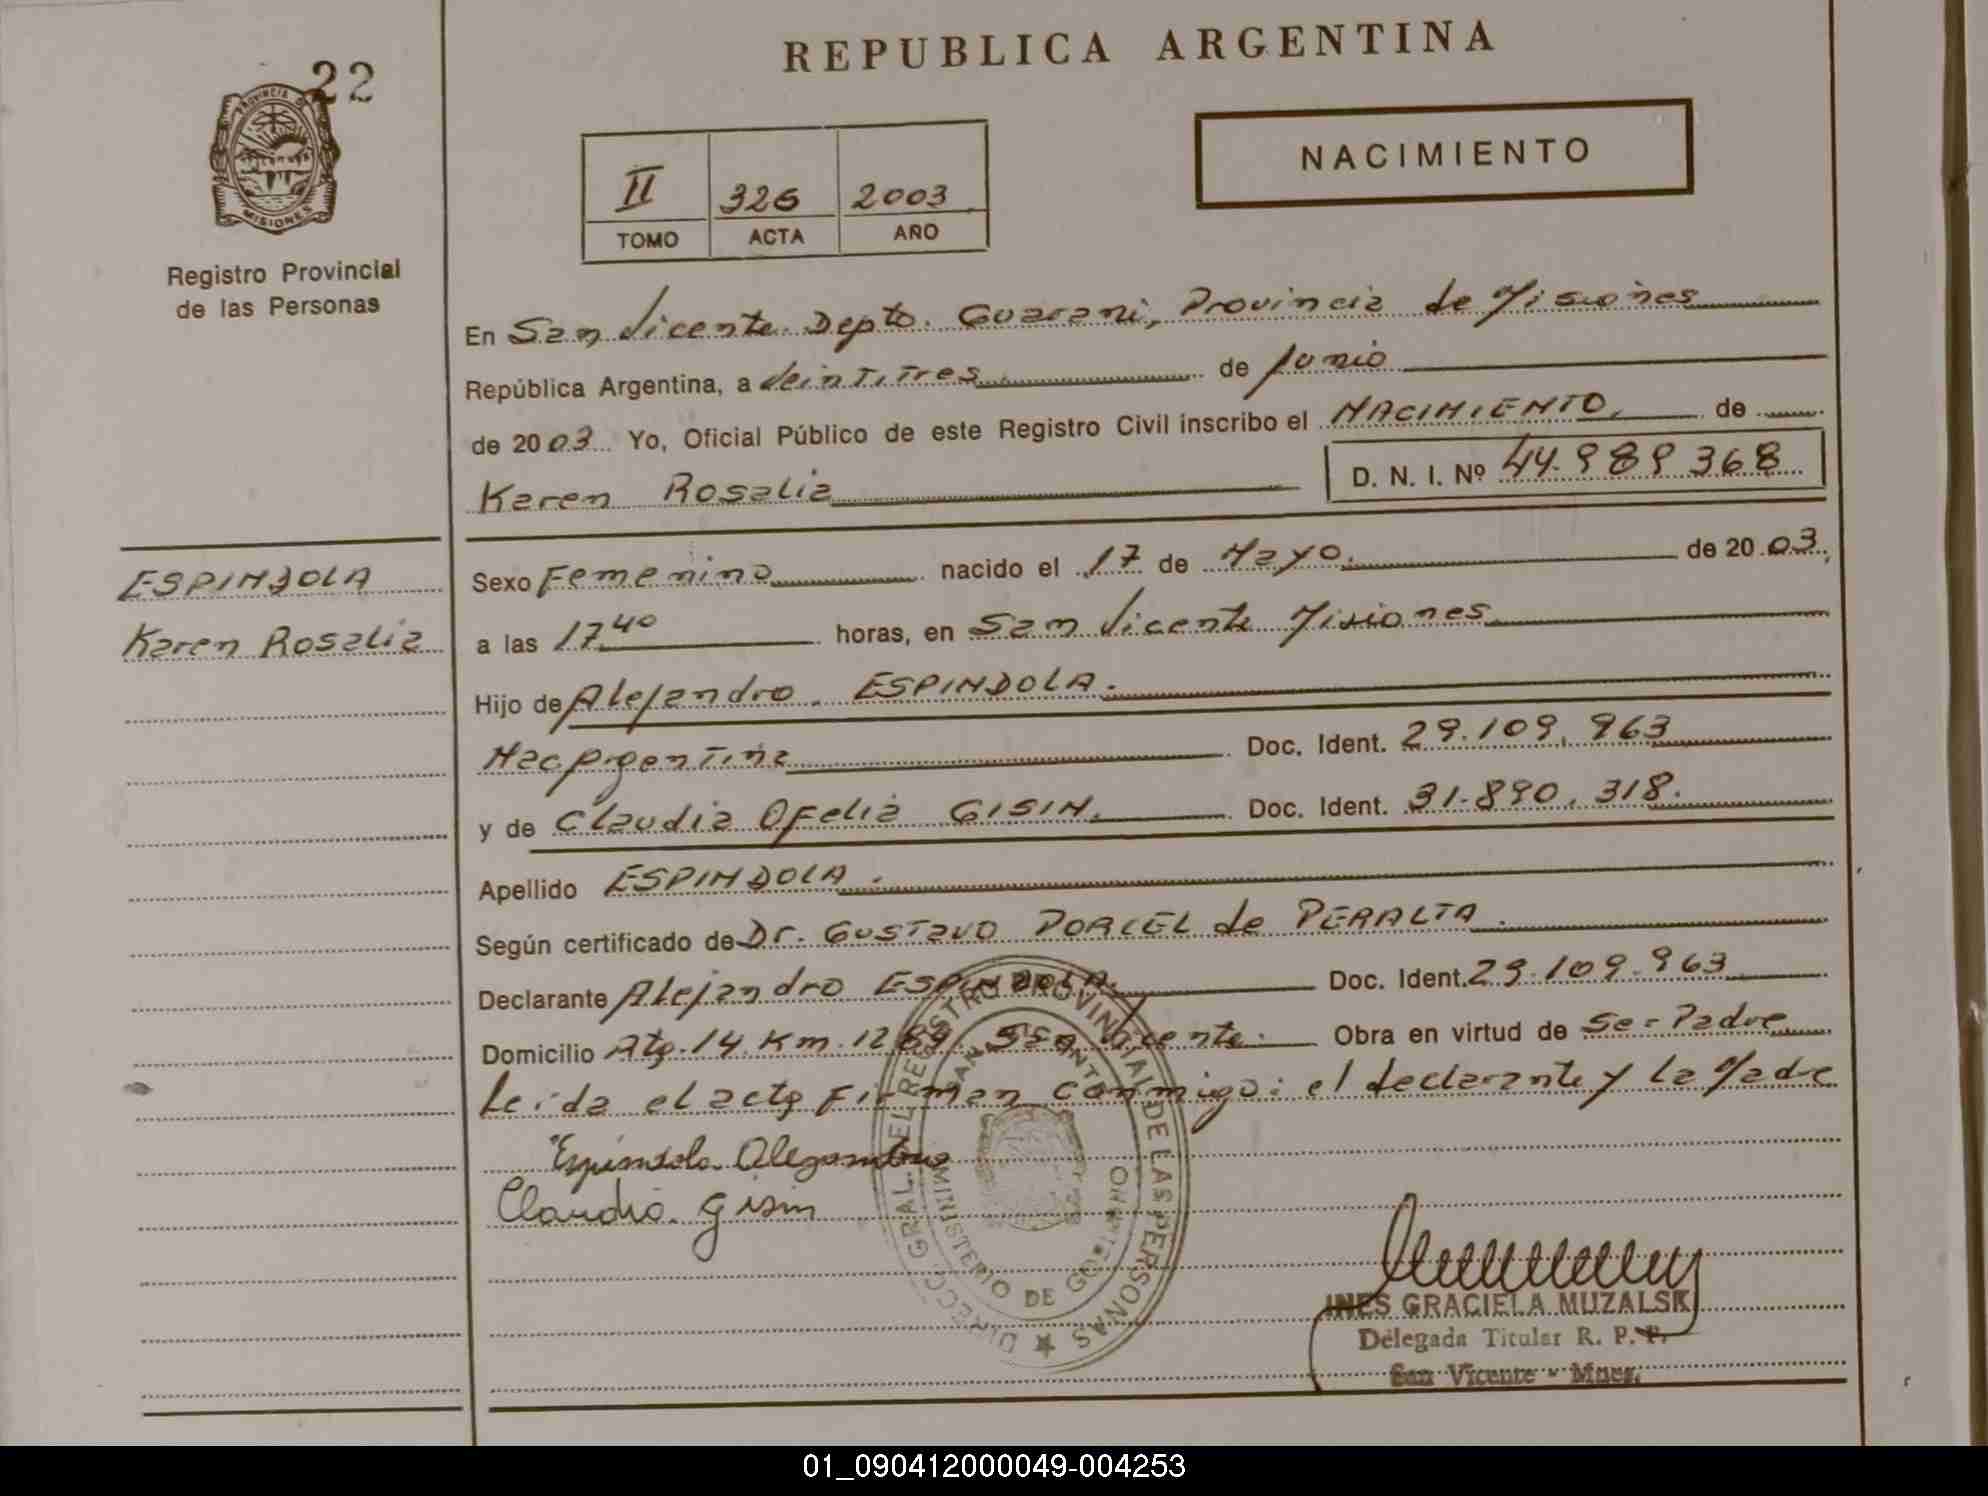 22
REPUBLICA ARGENTINA
PROVINCIA DE MISIONES
Registro Provincial
de las Personas
NACIMIENTO
II 326 2003
TOMO ACTA AÑO
En San Vicente Depto. Guarani, Provincia de Misiones
República Argentina, a Veintitres de Junio
de 2003 Yo, Oficial Público de este Registro Civil inscribo el NACIMIENTO, de
Karen Rosalia D. N. I. Nº 44.989368
ESPINDOLA
Karen Rosalia
Sexo Femenino nacido el 17 de Mayo. de 2003,
a las 17 40 horas, en San Vicente Misiones
Hijo de Alejandro ESPINDOLA.
Nac Argentina Doc. Ident. 29.109.963
y de Claudia Ofelia GISIN. Doc. Ident. 31.890.318.
Apellido ESPINDOLA.
Según certificado de Dr. GUSTAVO PORCEL de PERALTA.
Declarante Alejandro ESPINDOLA. Doc. Ident. 29.109.963
Domicilio Km. 1289 San Vicente. Obra en virtud de Ser Padre
Leida el acta Firman Conmigo: el declarante y la Madre
Espindola Alegandro
Claudia Gisin
DIRECC. GRAL. DEL REGISTRO PROVINCIAL DE LAS PERSONAS
MINISTERIO DE GOBIERNO
INES GRACIELA MUZALSKI
Delegada Titular R. P. P.
San Vicente - Mnes.
01_090412000049-004253